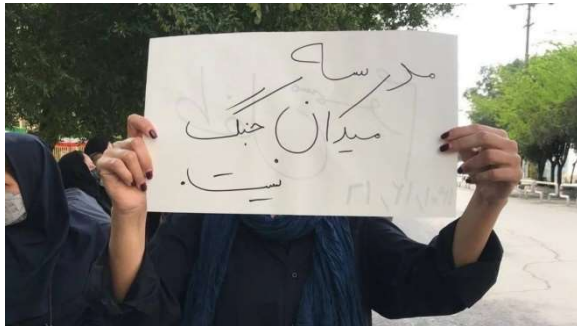 مدرسه
میدان جنگ
نیست.